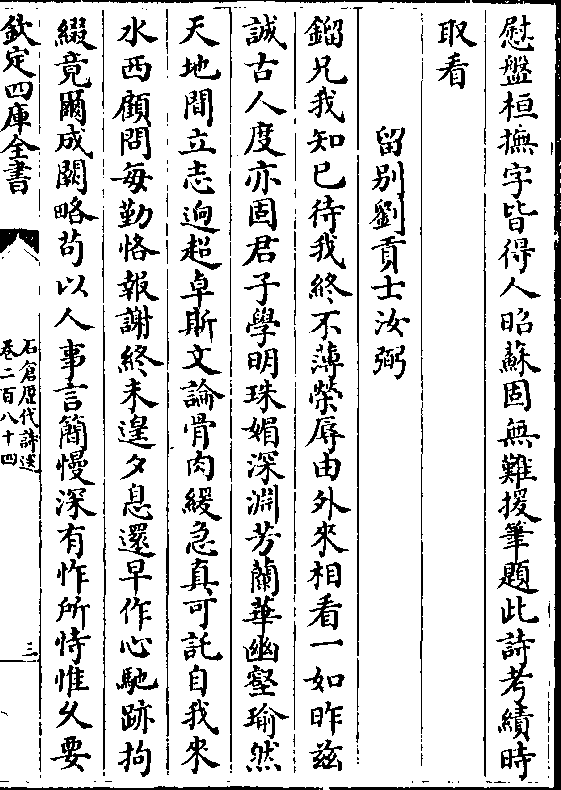 慰盤桓撫字皆得人昭蘇固無難援筆題此詩考績時
取看
留别劉貢士汝弼
鎦兄我知已待我終不薄榮辱由外來相看一如昨兹
誠古人度亦固君子學明珠媚深淵芳蘭華幽壑瑜然
天地間立志逈超卓斯文論骨肉緩急真可託自我來
水西顧問每勤恪報謝終未遑夕息還早作心馳跡拘
綴竟爾成闕略茍以人事言簡慢深有怍所恃惟久要
欽定四庫全書
石倉歴代詩選
卷二百八十四
三